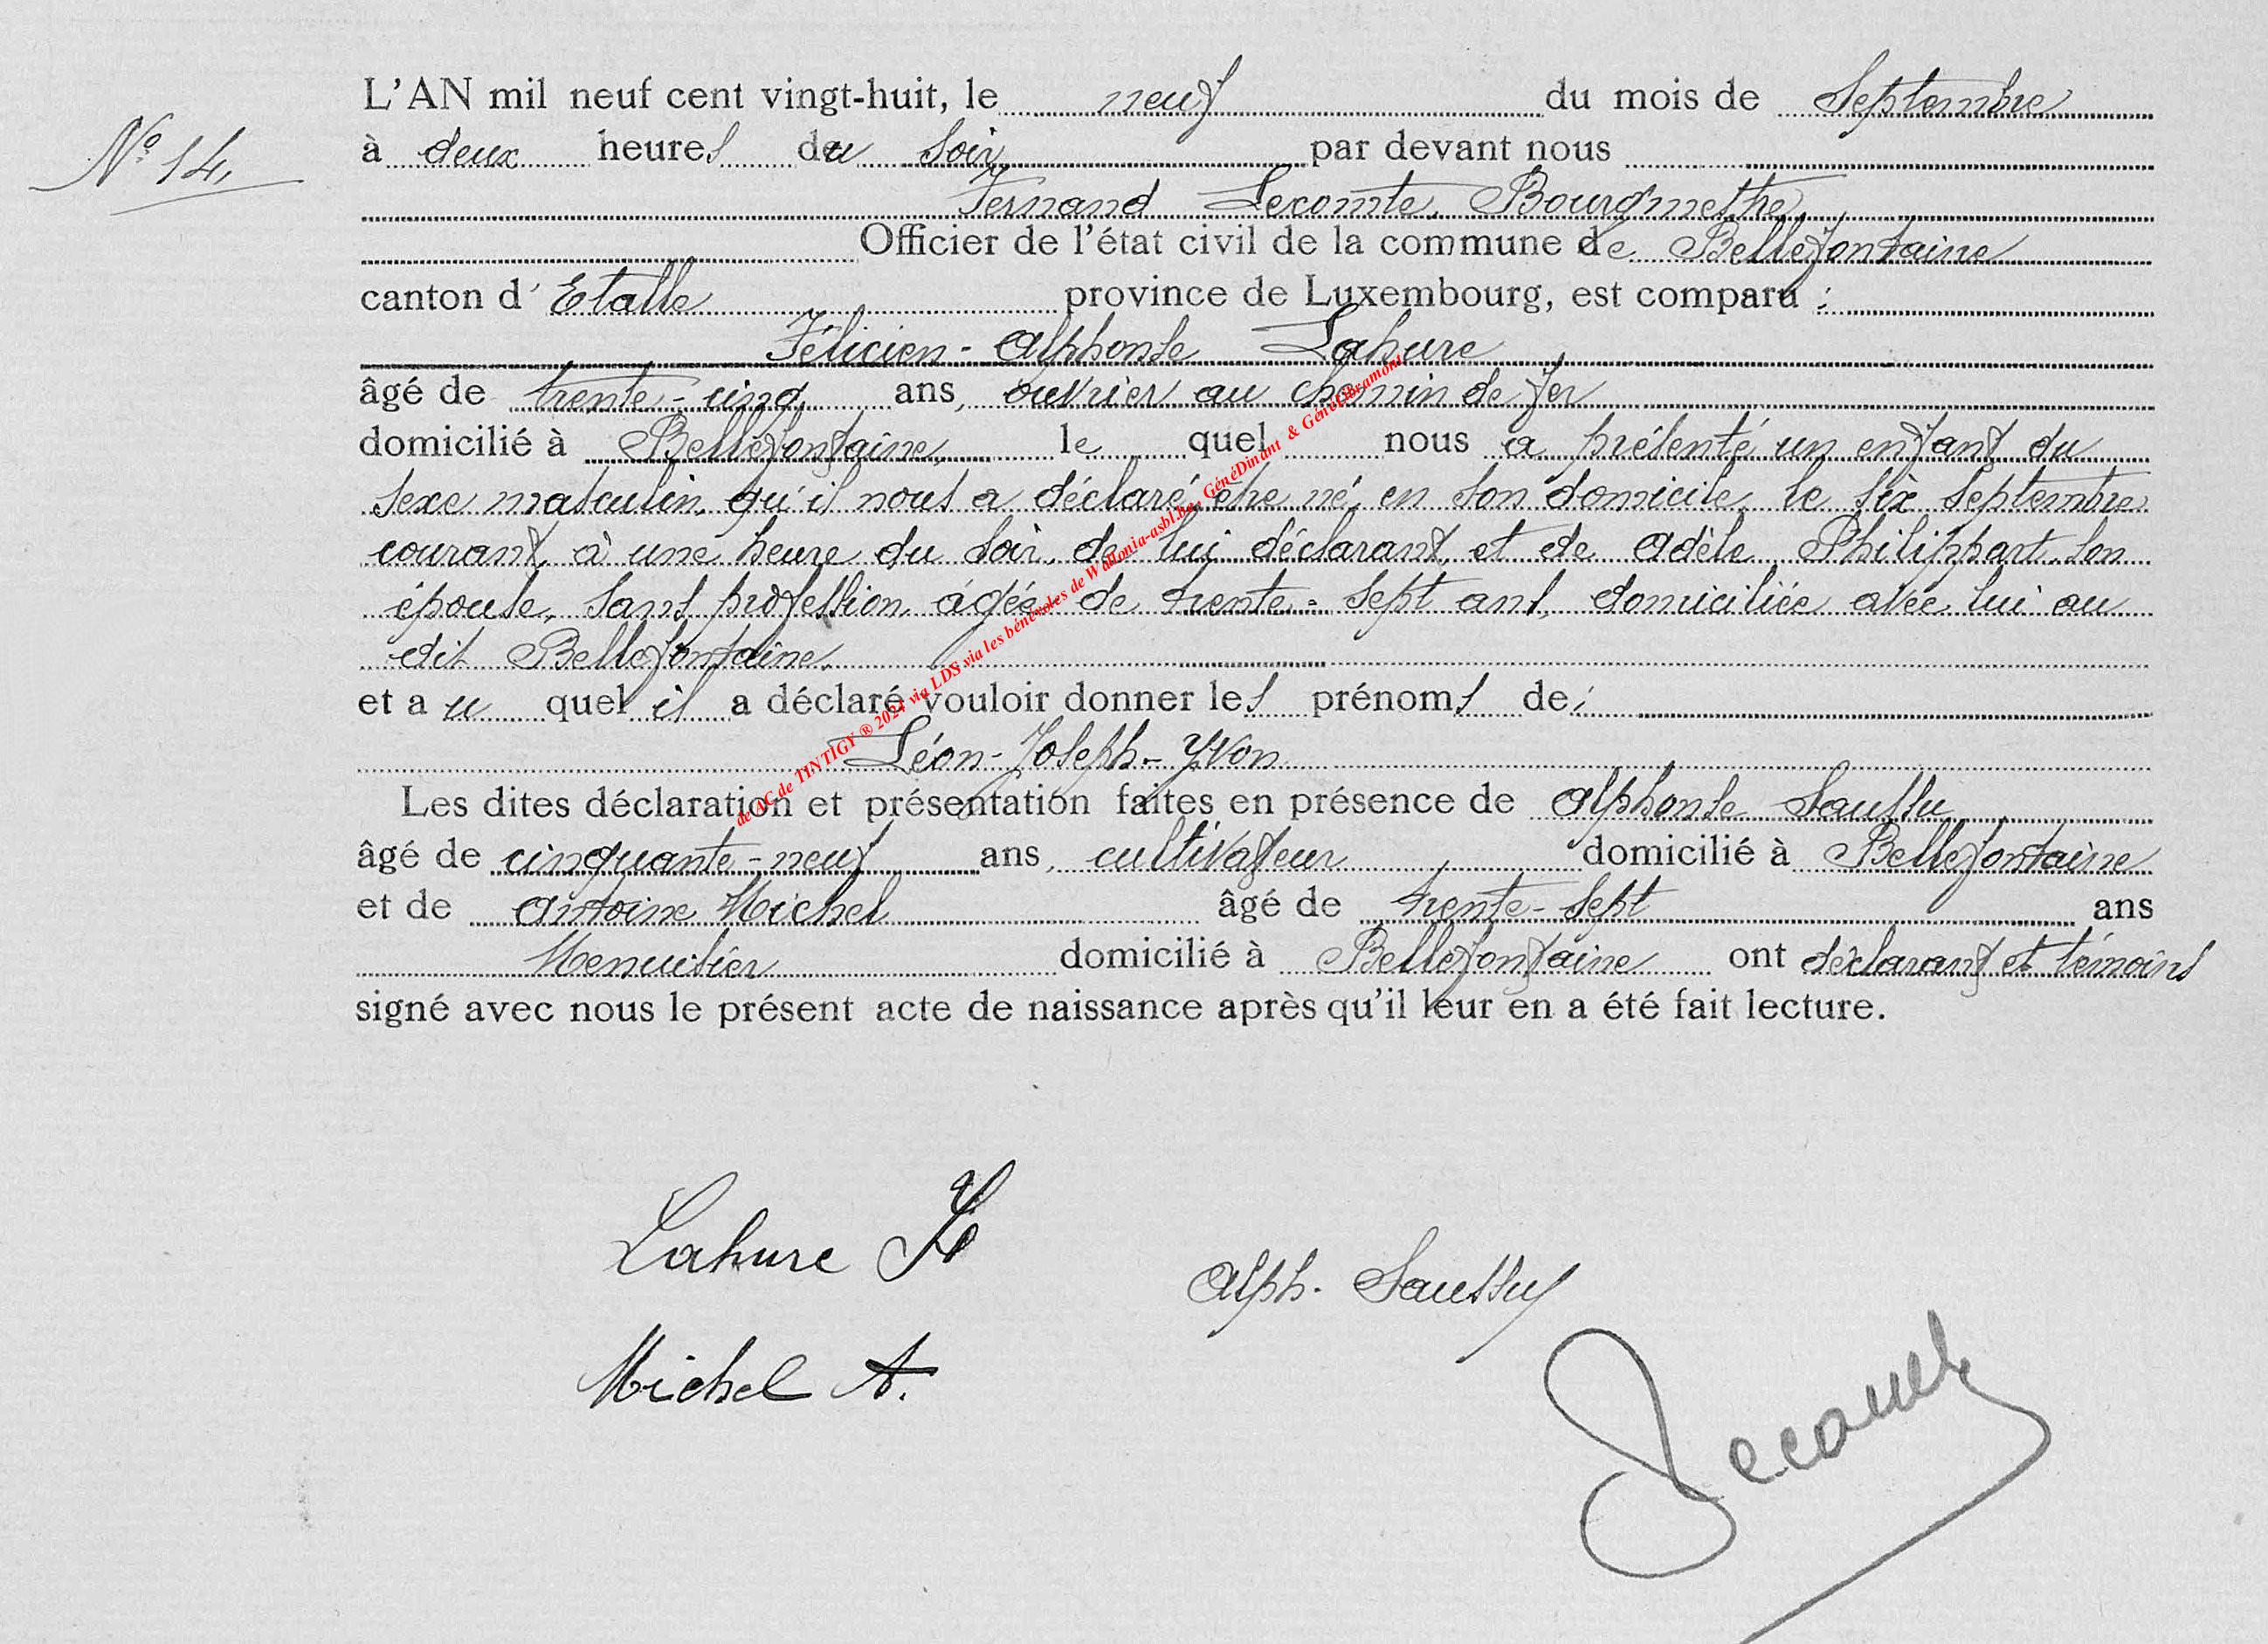 L'AN mil neuf cent vingt-huit, le neuf du mois de Septembre
N° 14, à deux heures du soir par devant nous
Fernand Lecomte, Bourgmestre
Officier de l'état civil de la commune de Bellefontaine
canton d' Etalle province de Luxembourg, est comparu :
Félicien-Alphonse Lahure
âgé de trente-cinq ans, ouvrier au chemin de fer
domicilié à Bellefontaine, le quel nous a présenté un enfant du
sexe masculin, qu'il nous a déclaré être né, en son domicile, le six septembre
courant, à une heure du soir, de lui déclarant, et de Adèle Philippart, son
épouse, sans profession, âgée de trente-sept ans, domiciliée avec lui au
dit Bellefontaine.
et au quel il a déclaré vouloir donner les prénoms de :
Léon-Joseph-Yvon
Les dites déclaration et présentation faites en présence de Alphonse Saussu
âgé de cinquante-neuf ans, cultivateur domicilié à Bellefontaine
et de Antoine Michel âgé de trente-sept ans
Menuisier domicilié à Bellefontaine ont déclarant et témoins
signé avec nous le présent acte de naissance après qu'il leur en a été fait lecture.
de AC de TINTIGY ® 2024 via LDS via les bénévoles de Wallonia-asbl.be, GénéDinant & GénéLibramont
Lahure F
Alph. Saussu
Michel A.
Lecomte